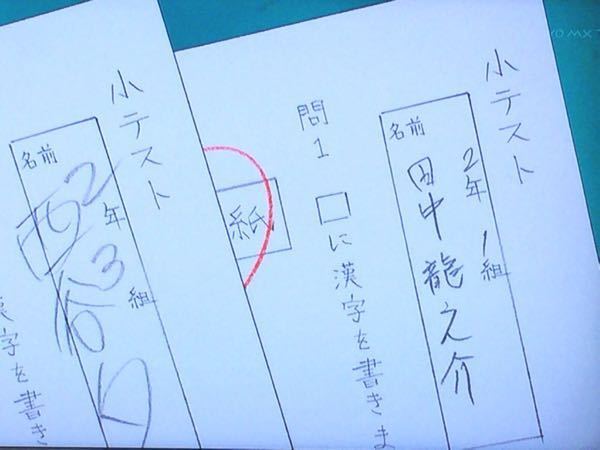 小テスト
2年1組
名前 田中龍之介
問1 □に漢字を書きま
紙
小テスト
2年3組
名前 西谷夕
漢字を書き
YO MX